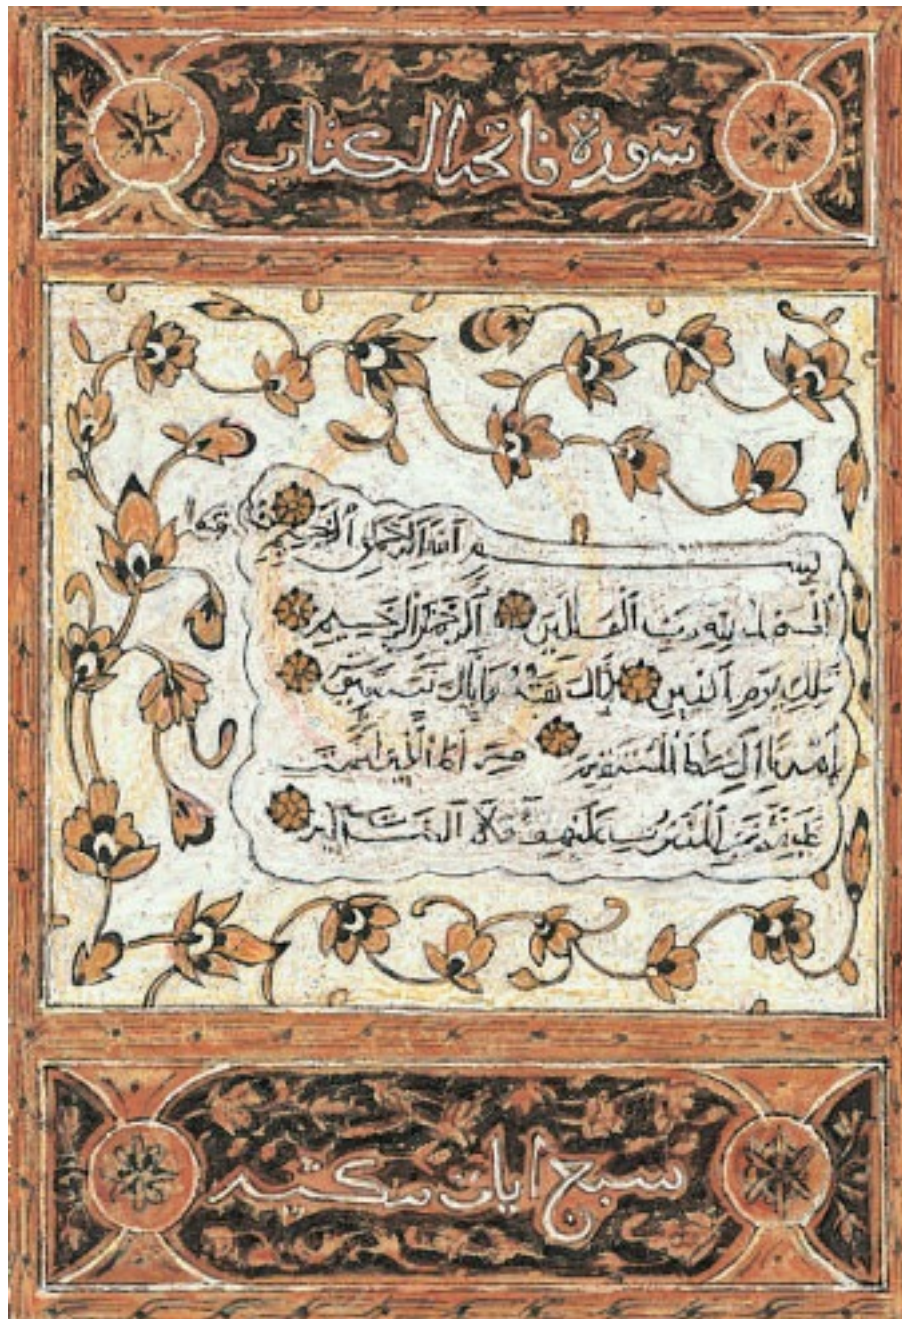 سورة فاتحة الكتاب
بسم الله الرحمن الرحيم
الحمد لله رب العلمين الرحمن الرحيم
ملك يوم الدين إياك نعبد وإياك نستعين
اهدنا الصراط المستقيم صرط الذين أنعمت
عليهم غير المغضوب عليهم ولا الضالين
سبع ايات مكية